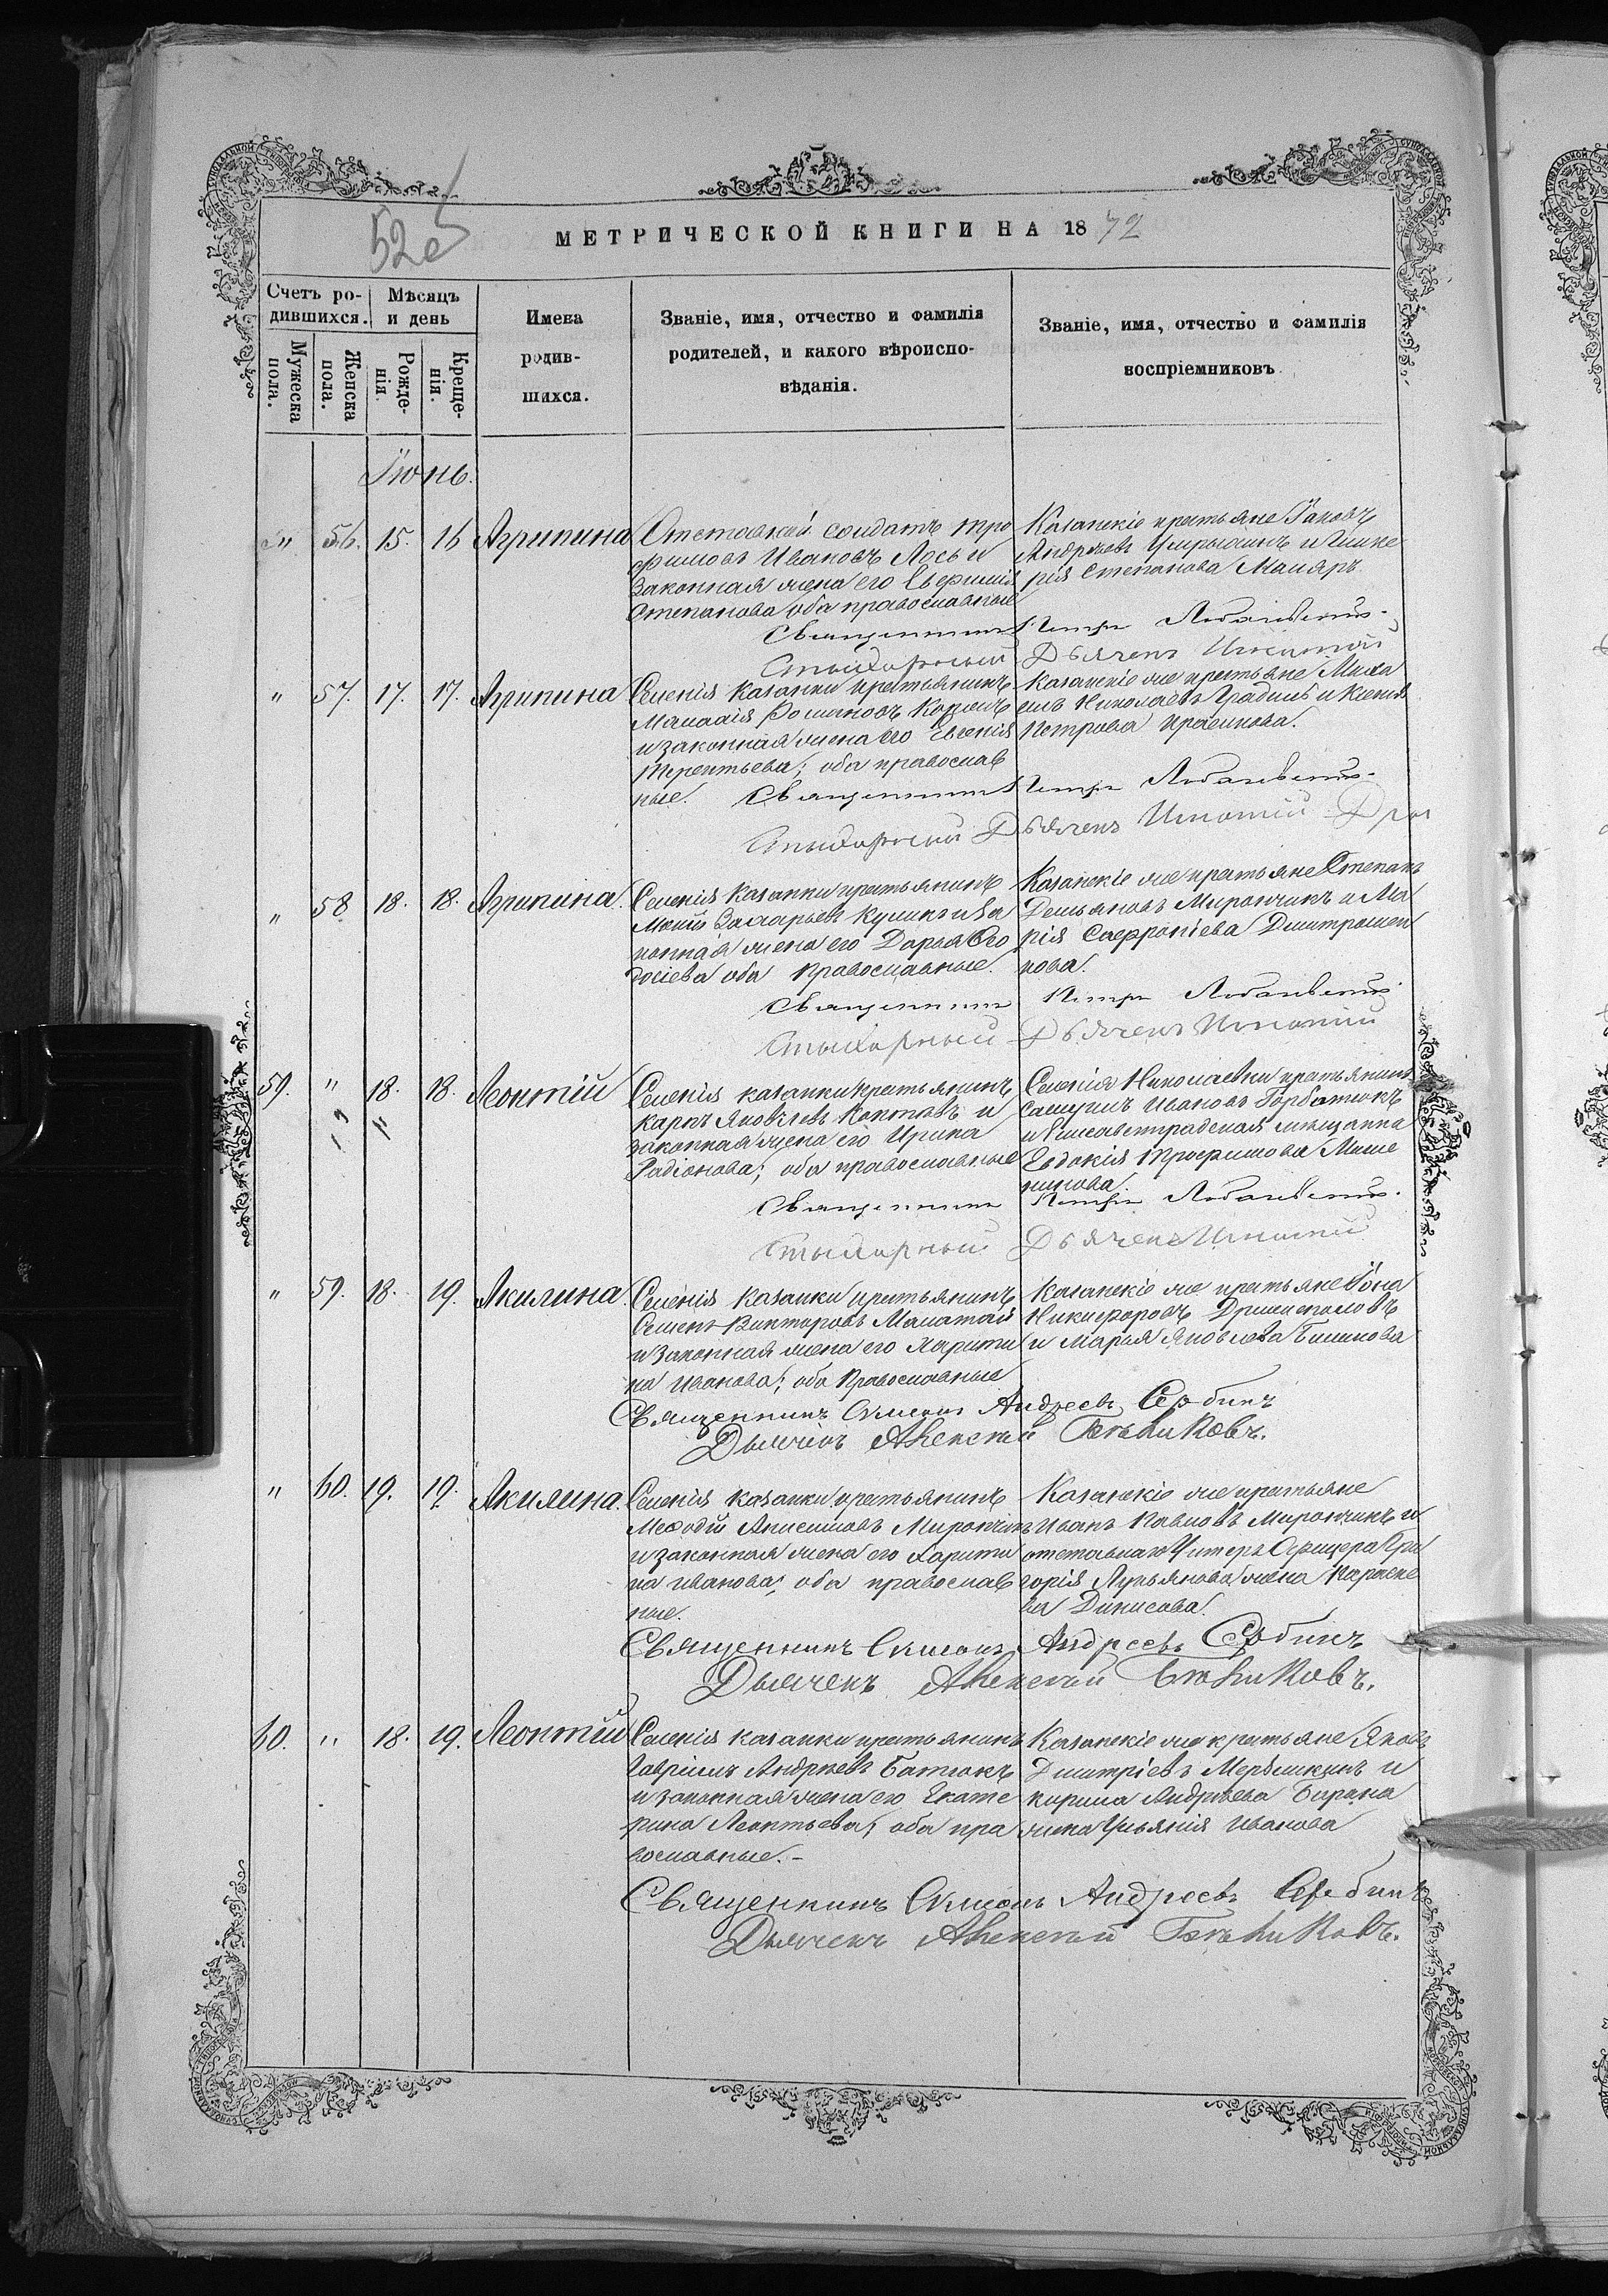 МЕТРИЧЕСКОЙ КНИГИ НА 1872
Счетъ ро-
дившихся.
Мужеска
пола.
Женска
пола.
Мѣсяцъ
и день
Рожде-
нія.
Креще-
нія.
Имена
родив-
шихся.
Званіе, имя, отчество и фамилія
родителей, и какого вѣроиспо-
вѣданія.
Званіе, имя, отчество и фамилія
воспріемниковъ
Іюнь.
" 56. 15. 16 Агрипина
Отставной солдатъ Тро
фимовъ Ивановъ Лось и
законная жена его Евфимія
Степанова оба православные
Казанскіе крестьяне Іаковъ
Андреевъ и Глике
рія Степанова Маляръ
Священникъ Петръ
Стихарный Дьячекъ Игнатій
" 57. 17. 17. Агрипина
Селенія Казанки крестьянинъ
Малахія Романовъ
и законная жена его Евгенія
Терентьева; оба православ
ные.
Казанскіе же крестьяне Миха
илъ Николаевъ и Ксенія
Петрова
Священникъ Петръ
Стихарный Дьячекъ Игнатій
" 58 18. 18. Агрипина.
Селенія Казанки крестьянинъ
Захарьевъ и за
конная жена его Дарья Ѳео
досіева оба православные.
Казанскіе же крестьяне Степанъ
Демьяновъ Мирончикъ и Ма
рія Софроніева Дмитрошен
кова.
Священникъ Петръ
Стихарный Дьячекъ Игнатій
59. " 18. 18. Леонтій
Селенія Казанки крестьянинъ
Карпъ Яковлевъ и
законная жена его Ирина
Радіонова; оба православные
Селенія Николаевки крестьянинъ
Самуилъ Ивановъ Горбатюкъ
и Елисаветградская мѣщанка
Евдокія Трофимова
Священникъ Петръ
Стихарный Дьячекъ Игнатій
" 59. 18. 19. Акилина.
Селенія Казанки крестьянинъ
Семенъ Викторовъ
и законная жена его Харити
на Иванова; оба Православные
Казанскіе же крестьяне Іона
Никифоровъ
и Марья Яковлева
Священникъ Симеонъ Андреевъ Сербинъ
Дьячекъ Алексѣй
" 60. 19. 19. Акилина.
Селенія Казанки крестьянинъ
Меѳодій Анисимовъ Мирончикъ
и законная жена его Харити
на Иванова; оба православ
ные.
Казанскіе же крестьяне
Иванъ Павловъ Мирончикъ и
отставнаго Унтеръ Офицера Гри
горія Лукьянова жена Параске
ва Динисова.
Священникъ Симеонъ Андреевъ Сербинъ
Дьячекъ Алексѣй
60. " 18. 19. Леонтій
Селенія Казанки крестьянинъ
Гавріилъ Андреевъ Батюкъ
и законная жена его Екате
рина Леонтьева; оба пра
вославные.-
Казанскіе же крестьяне Яковъ
Дмитріевъ и
Кирила Андреева Барана
жена Ульянія Иванова
Священникъ Симеонъ Андреевъ Сербинъ
Дьячекъ Алексѣй